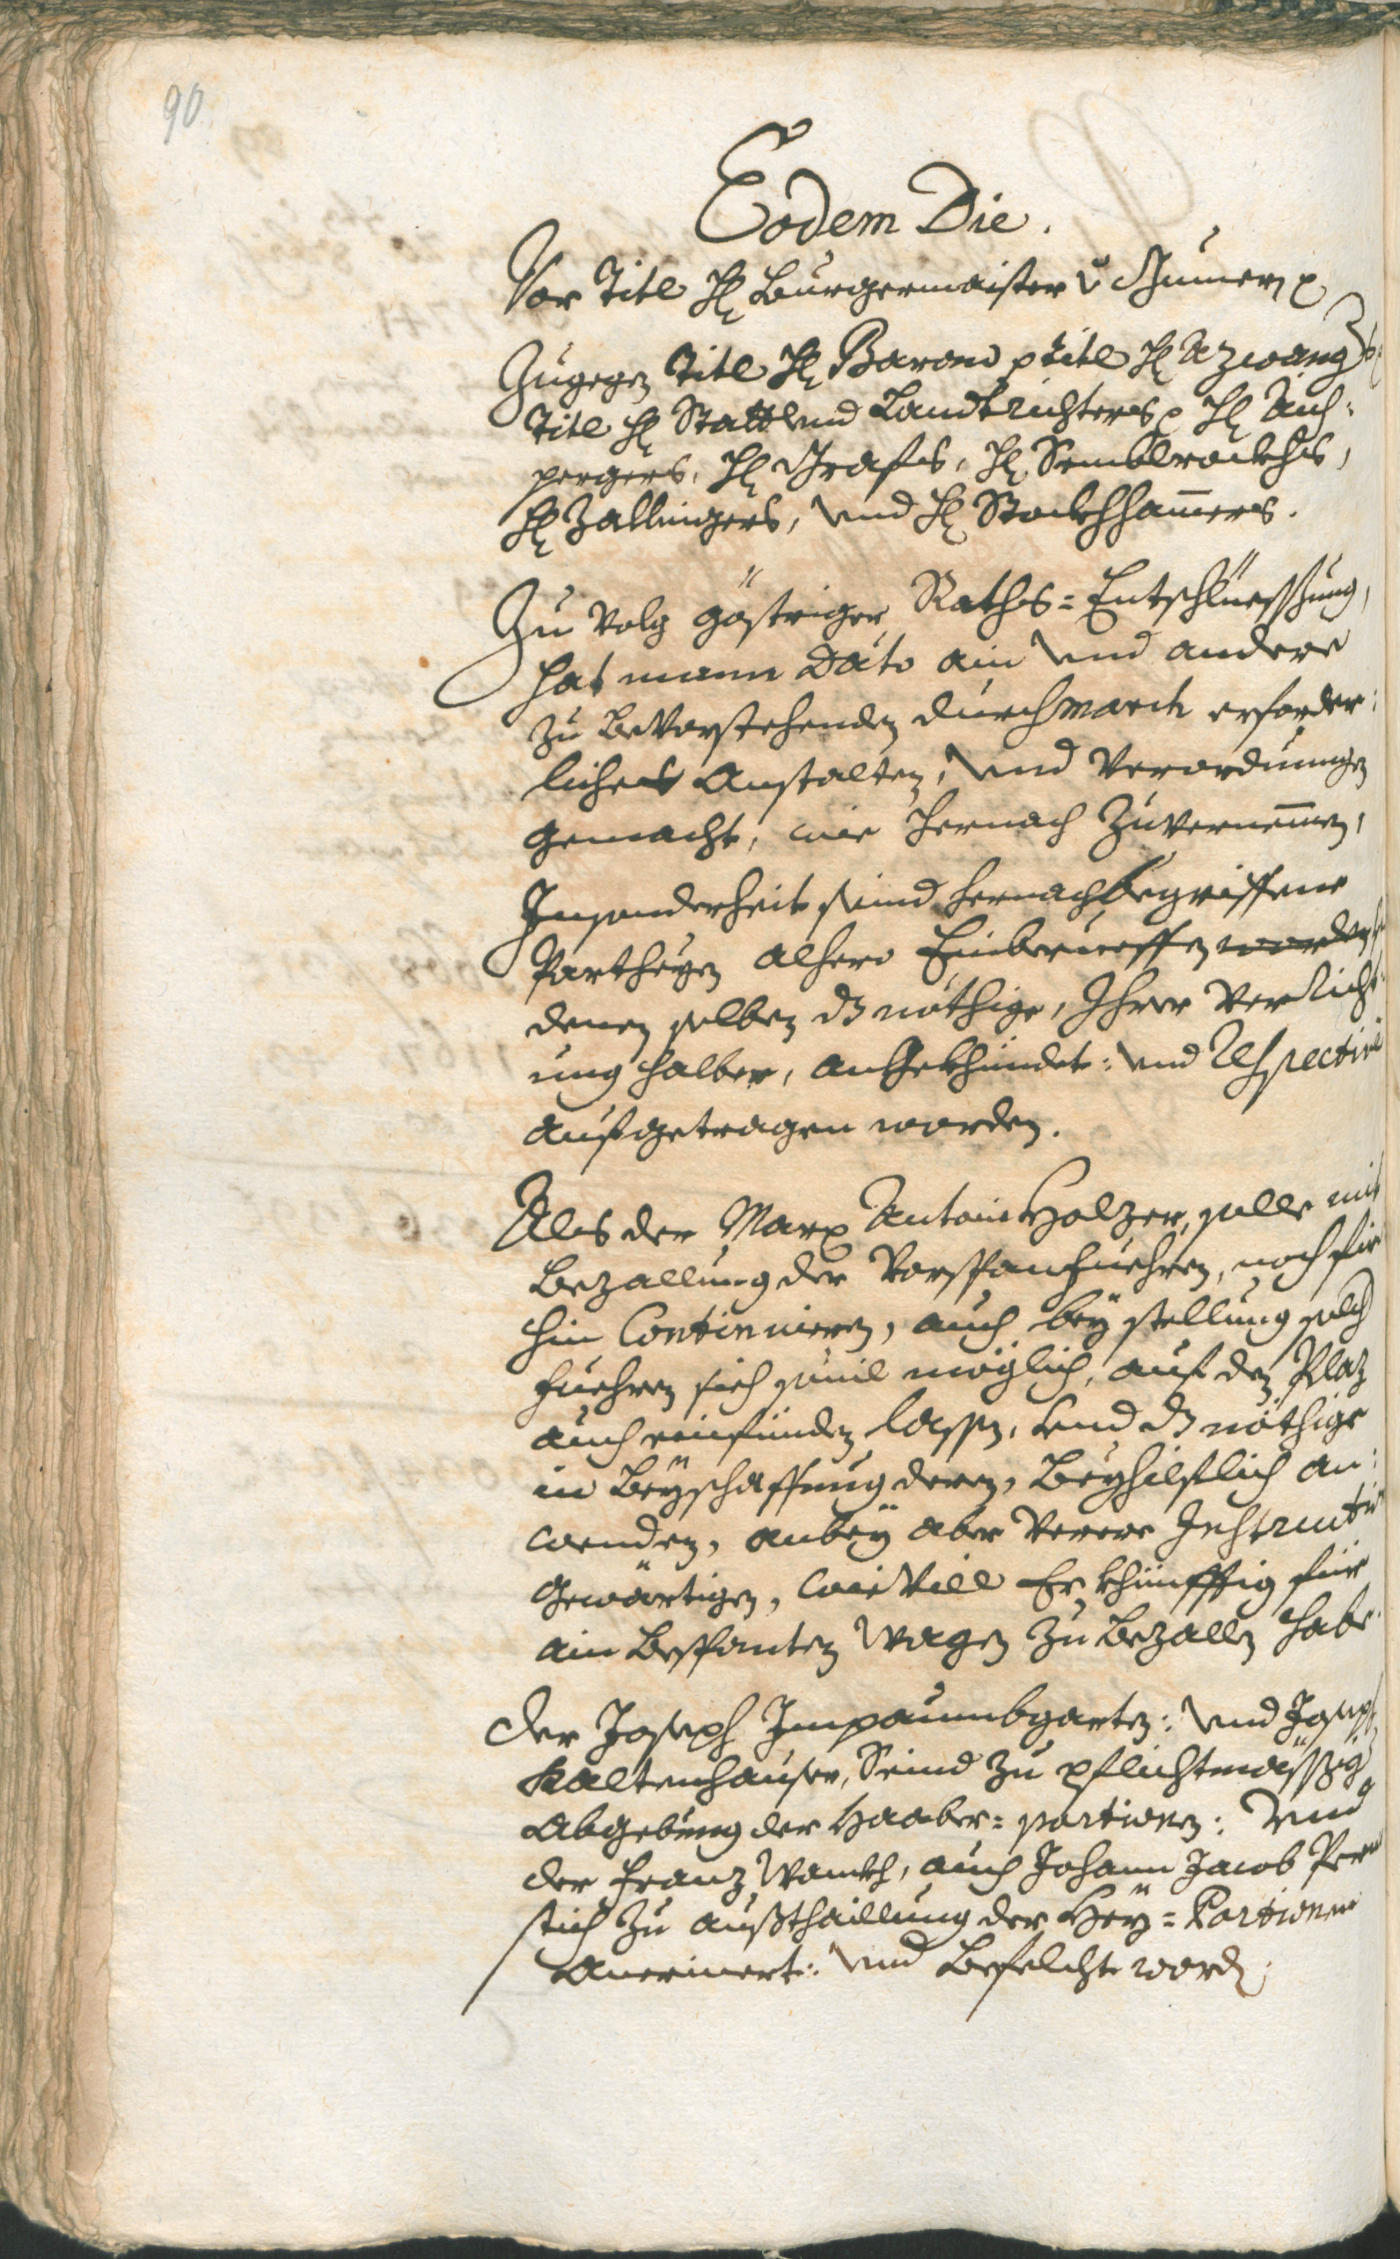 90
Eodem Die.
Vor Titl H: Burgermaister v Gumer, p
Zugegen Titl H: Baron p titl H: Azwang p
Titl H: Statt vnd Landtrichters p H: Aich:
pergers, H: Grafes, H: Semblrockhs,
H: Zallingers, vnd H: Stockhhamers.
Zu volg göstriger Raths=Entschlüessung,
hat mann Dato ain vnd andere
zu bevorstehenden durchmarch erforder:
liche Anstalten, vnd Verordnungen
gemacht, wie hernach zuvernemen,
Insonderheit seind hernachbegriffene
Partheyen alhero Einberueffen worden,
denen selben dz nöthige, Ihrer Verricht
ung halber, angekhündet: vnd respective
aufgetragen worden.
Als der Marx Antoni Holzer, solle mit
Bezallung der Vorspanfuehren, noch für
hin Continuieren, auch bey stellung solch
fuehren sich souil möglich, auf den Plaz
auch einfünden lassen, vnd dz nöthige
in beyschaffung deren, beyhilflich an:
wenden, anbey aber Verere Instruction
gewärtigen, wieuill Er khünfftig für
ain bespanten Wagen zu bezallen habe.
der Joseph Impaumbgarten: vnd Joseph
Kaltenhauser, Seind zu pflichtmässig
Abgebung der Haaber=portionen: vnd
der Franz Wanckh, auch Johann Jacob Pern
stich zu außthaillung der Hey=Portionen
Anerinert: vnd befelcht word.